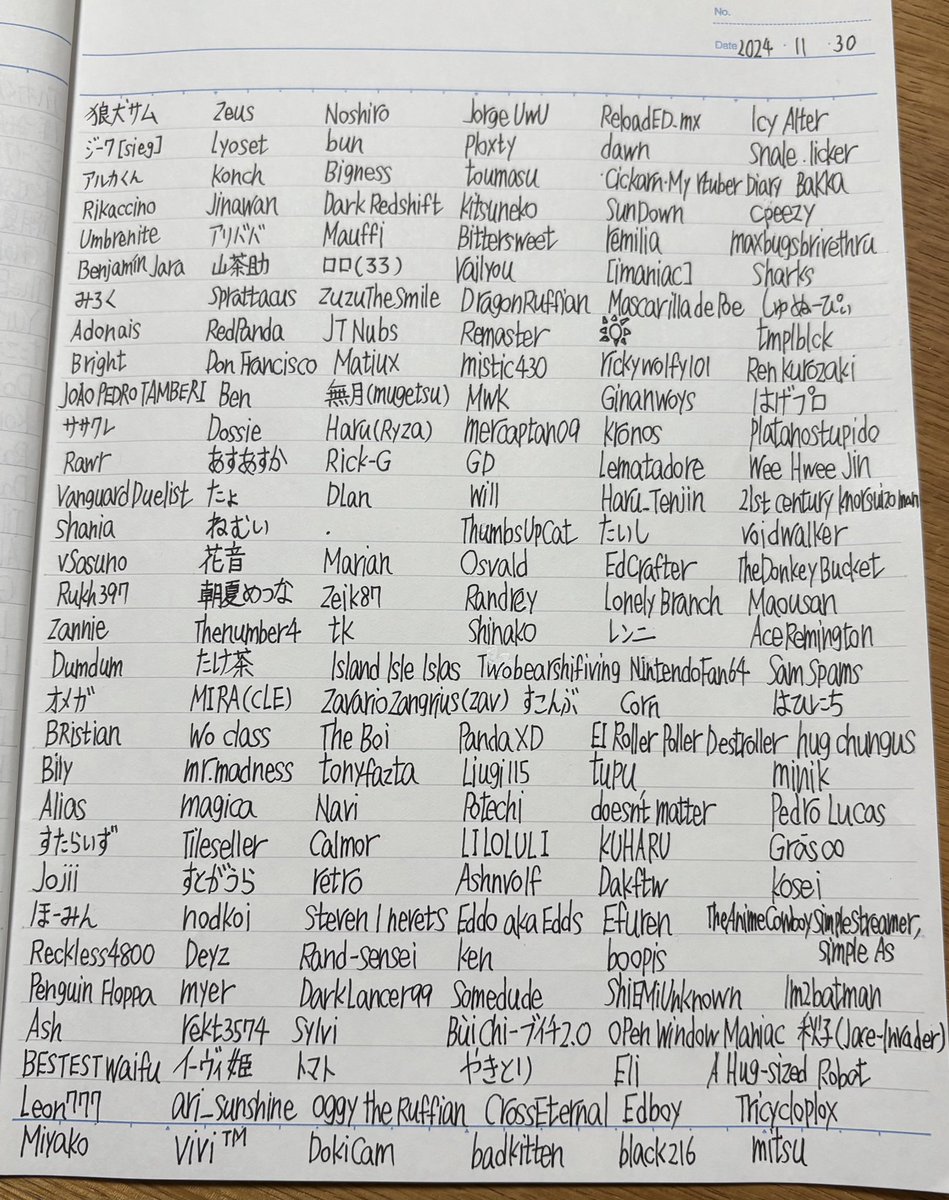 No.
Date 2024 . 11 . 30
狼犬サム Zeus Noshiro Jorge UwU ReloadED_mx Icy Alter
ジーク[sieg] lyoset bun Ploxty dawn Snale.licker
アルカくん konch Bigness toumasu Cickarn·My Vtuber Diary Bakka
Rikaccino Jinawan Dark Redshift kitsuneko SunDown cpeezy
Umbrenite アリババ Mauffi Bittersweet remilia maxbugsbrivethru
Benjamín Jara 山茶助 ロロ(33) Vailyou [imaniac] Sharks
みろく Sprattacus ZuzuTheSmile DragonRuffian Mascarilla de Poe しゅぬーぴぃ
Adonais RedPanda JT Nubs Remaster tmplblck
Bright Don Francisco Matiux mistic430 rickywolfy101 Ren kurozaki
JOÃO PEDRO TAMBERI Ben 無月(mugetsu) Mwk Ginanwoys はげプロ
ササクレ Dossie Haru(Ryza) mercaptan09 kronos Platanostupido
Rawr あすあすか Rick-G GD Lematadore Wee Hwee Jin
Vanguard Duelist たょ Dlan Will Haru_Tenjin 21st century knotsuizo man
shania ねむい . ThumbsUpCat たいし voidwalker
vSasuno 花音 Marian Osvald EdCrafter TheDonkeyBucket
Rukh397 朝夏めつな Zeik87 Randrey Lonely Branch Maousan
Zannie Thenumber4 tk Shinako レンニ Ace Remington
Dumdum たけ茶 Island Isle Islas Twobearshifiving NintendoFan64 Sam Spams
オメガ MIRA(CLE) Zavario Zangrius(zav) すこんぶ Corn はひにち
BRistian Wo class The Boi Panda XD El Roller Poller Destroller hug chungus
Bily mr.madness tonyfazta Liugi115 tupu minik
Alias magica Navi Potechi doesn't matter Pedro Lucas
すたらいず Tileseller Calmor LILOLULI KUHARU Grāsoo
Jojii すとがうら retro Ashnvolf Dakftw kosei
ほーみん nodkoi Steven I hevets Eddo aka Edds Efuren TheAnimeCowboySimpleStreamer,
simple As
Reckless4800 Deyz Rand-sensei ken boopis
Penguin Floppa myer DarkLancer99 Somedude ShiEMiUnknown Im2batman
Ash rekt3574 Sylvi Bui Chi-ブイチ2.0 Open Window Maniac (Jare-Invader)
BESTESTWaifu イーヴィ姫 トマト やきとり Eli A Hug-sized Robot
Leon777 ari_sunshine oggy the Ruffian CrossEternal Edboy Tricycloplox
Miyako Vivi™ DokiCam badkitten black216 mitsu